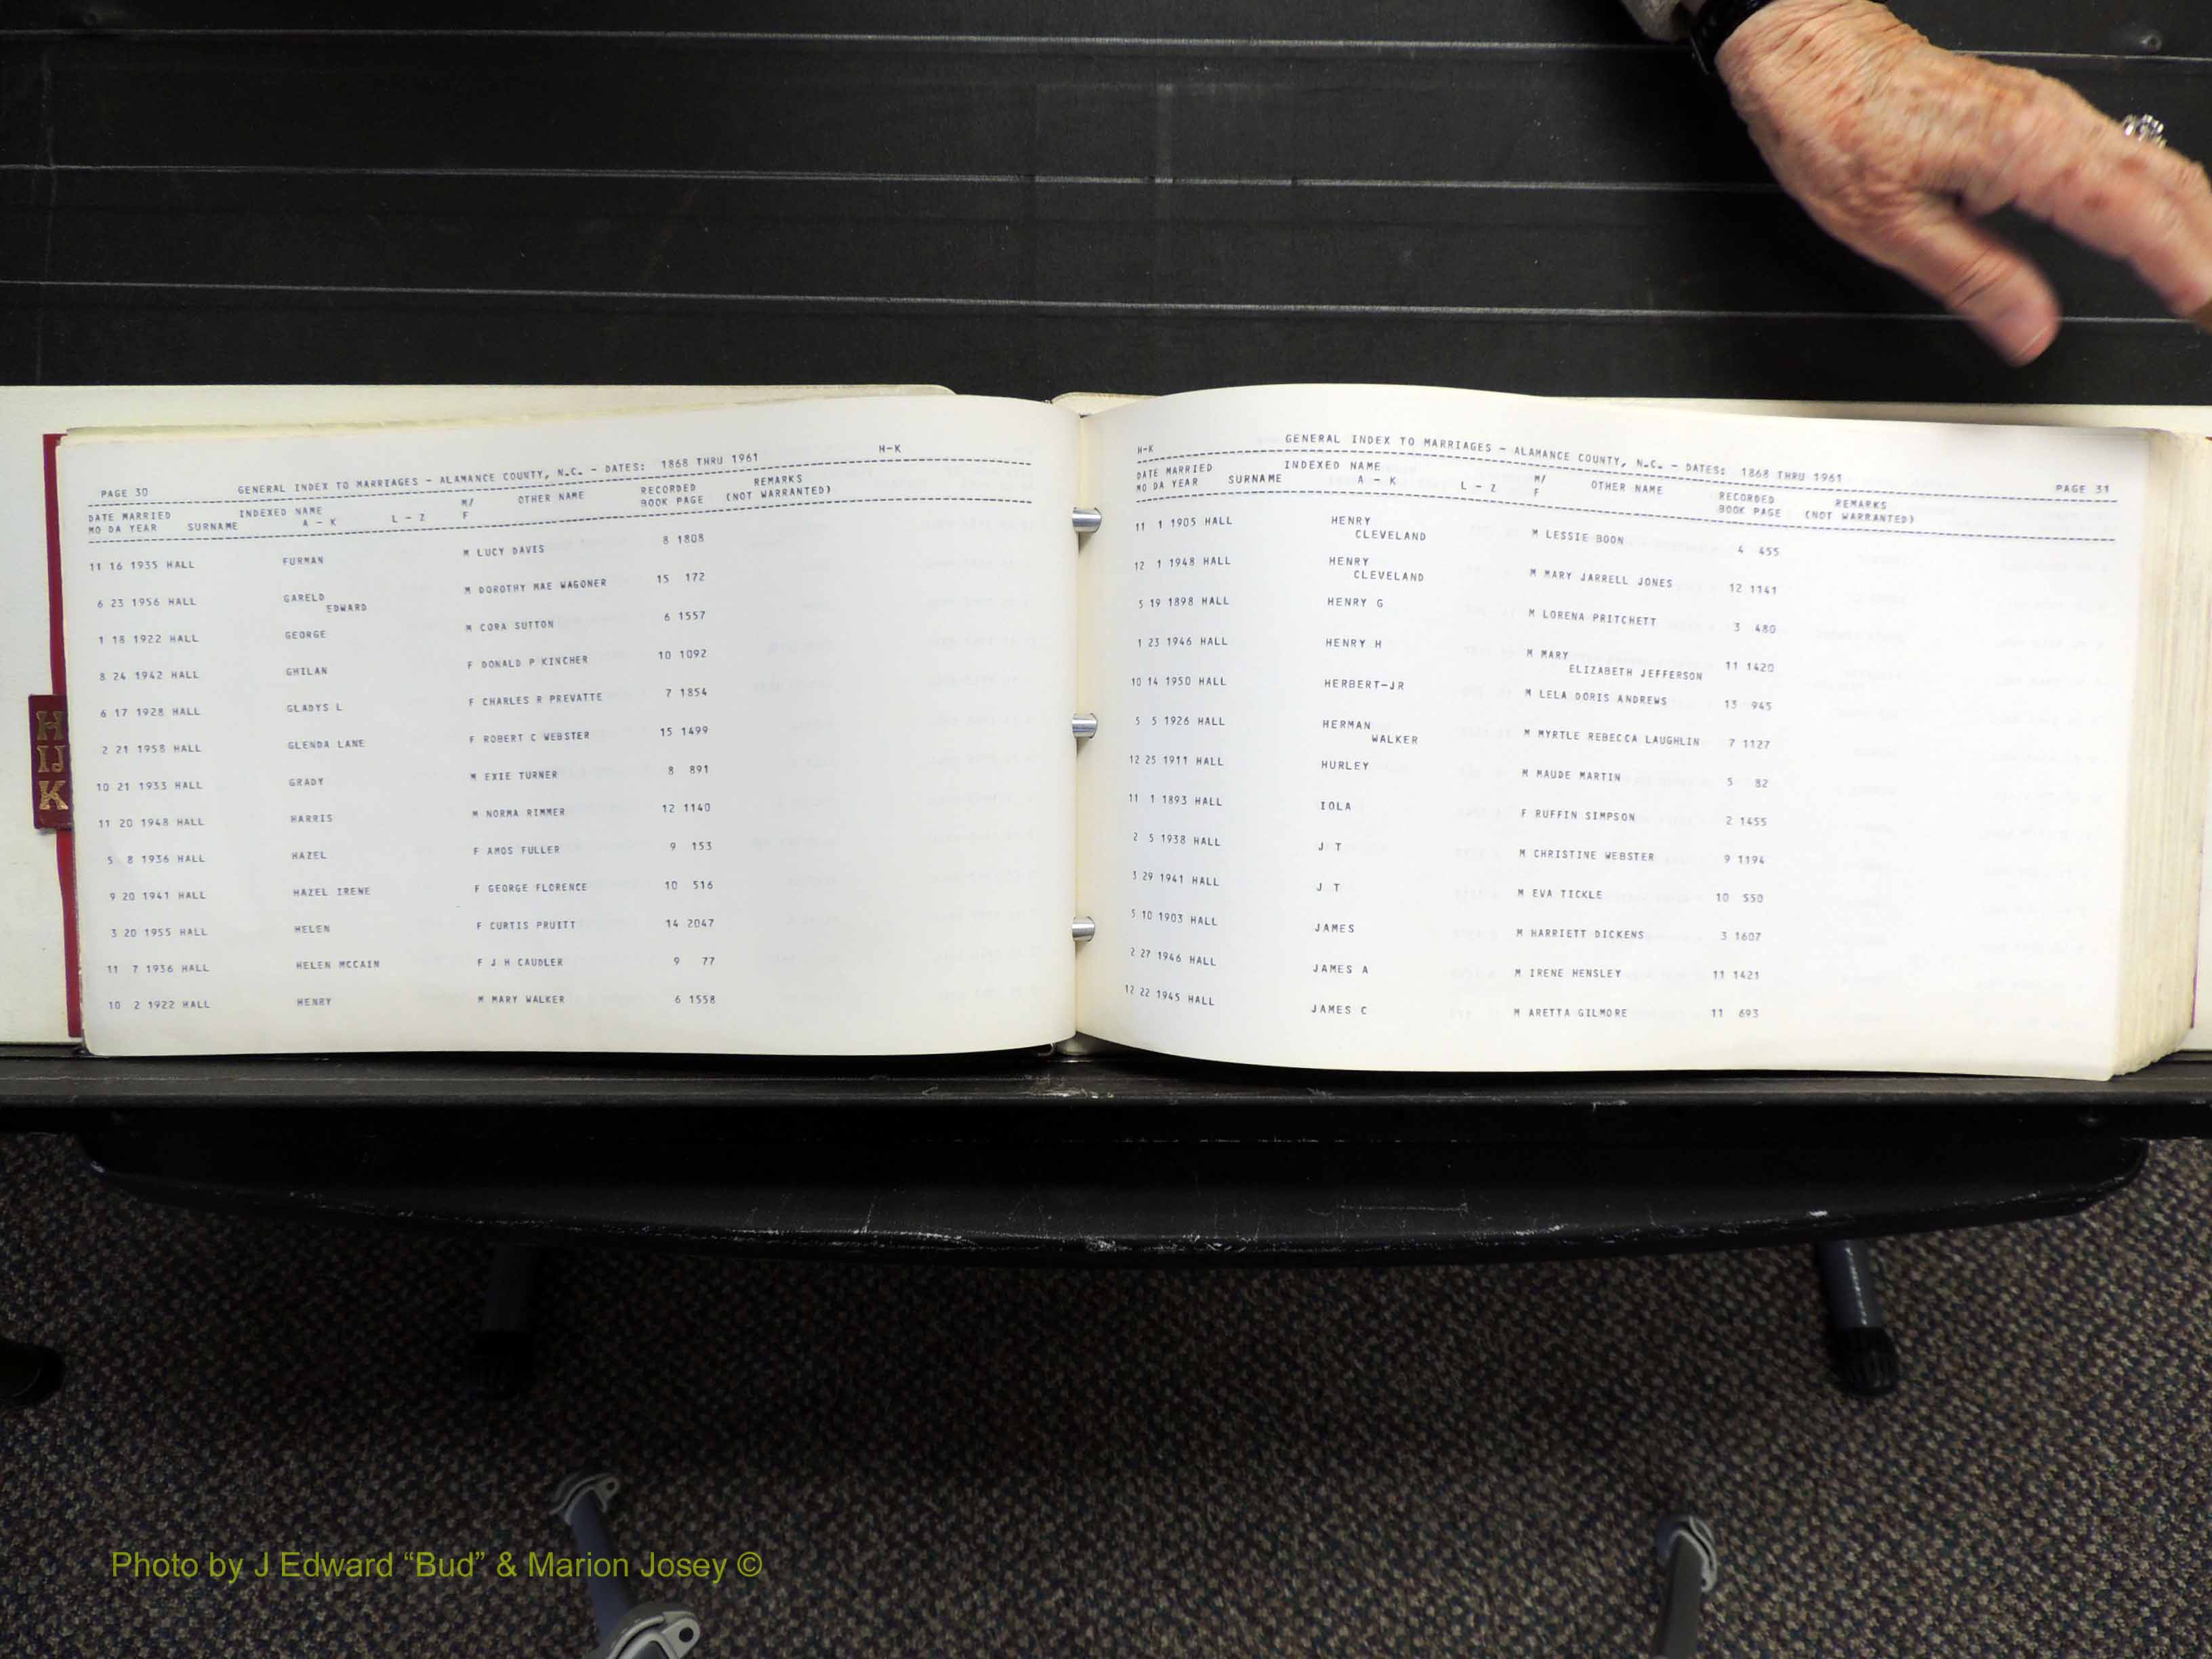 PAGE 30 GENERAL INDEX TO MARRIAGES - ALAMANCE COUNTY, N.C. - DATES: 1868 THRU 1961 H-K
DATE MARRIED INDEXED NAME M/ OTHER NAME RECORDED REMARKS
MO DA YEAR SURNAME A - K L - Z F BOOK PAGE (NOT WARRANTED)
11 16 1935 HALL FURMAN M LUCY DAVIS 8 1808
6 23 1956 HALL GARELD M DOROTHY MAE WAGONER 15 172
EDWARD
1 18 1922 HALL GEORGE M CORA SUTTON 6 1557
8 24 1942 HALL GHILAN F DONALD P KINCHER 10 1092
6 17 1928 HALL GLADYS L F CHARLES R PREVATTE 7 1854
2 21 1958 HALL GLENDA LANE F ROBERT C WEBSTER 15 1499
10 21 1933 HALL GRADY M EXIE TURNER 8 891
11 20 1948 HALL HARRIS M NORMA RIMMER 12 1140
5 8 1936 HALL HAZEL F AMOS FULLER 9 153
9 20 1941 HALL HAZEL IRENE F GEORGE FLORENCE 10 516
3 20 1955 HALL HELEN F CURTIS PRUITT 14 2047
11 7 1936 HALL HELEN MCCAIN F J H CAUDLER 9 77
10 2 1922 HALL HENRY M MARY WALKER 6 1558
H
IJ
K
H-K GENERAL INDEX TO MARRIAGES - ALAMANCE COUNTY, N.C. - DATES: 1868 THRU 1961 PAGE 31
DATE MARRIED INDEXED NAME M/ OTHER NAME RECORDED REMARKS
MO DA YEAR SURNAME A - K L - Z F BOOK PAGE (NOT WARRANTED)
11 1 1905 HALL HENRY M LESSIE BOON 4 455
CLEVELAND
12 1 1948 HALL HENRY M MARY JARRELL JONES 12 1141
CLEVELAND
5 19 1898 HALL HENRY G M LORENA PRITCHETT 3 480
1 23 1946 HALL HENRY H M MARY 11 1420
ELIZABETH JEFFERSON
10 14 1950 HALL HERBERT-JR M LELA DORIS ANDREWS 13 945
5 5 1926 HALL HERMAN M MYRTLE REBECCA LAUGHLIN 7 1127
WALKER
12 25 1911 HALL HURLEY M MAUDE MARTIN 5 82
11 1 1893 HALL IOLA F RUFFIN SIMPSON 2 1455
2 5 1938 HALL J T M CHRISTINE WEBSTER 9 1194
3 29 1941 HALL J T M EVA TICKLE 10 550
5 10 1903 HALL JAMES M HARRIETT DICKENS 3 1607
2 27 1946 HALL JAMES A M IRENE HENSLEY 11 1421
12 22 1945 HALL JAMES C M ARETTA GILMORE 11 693
Photo by J Edward “Bud” & Marion Josey ©